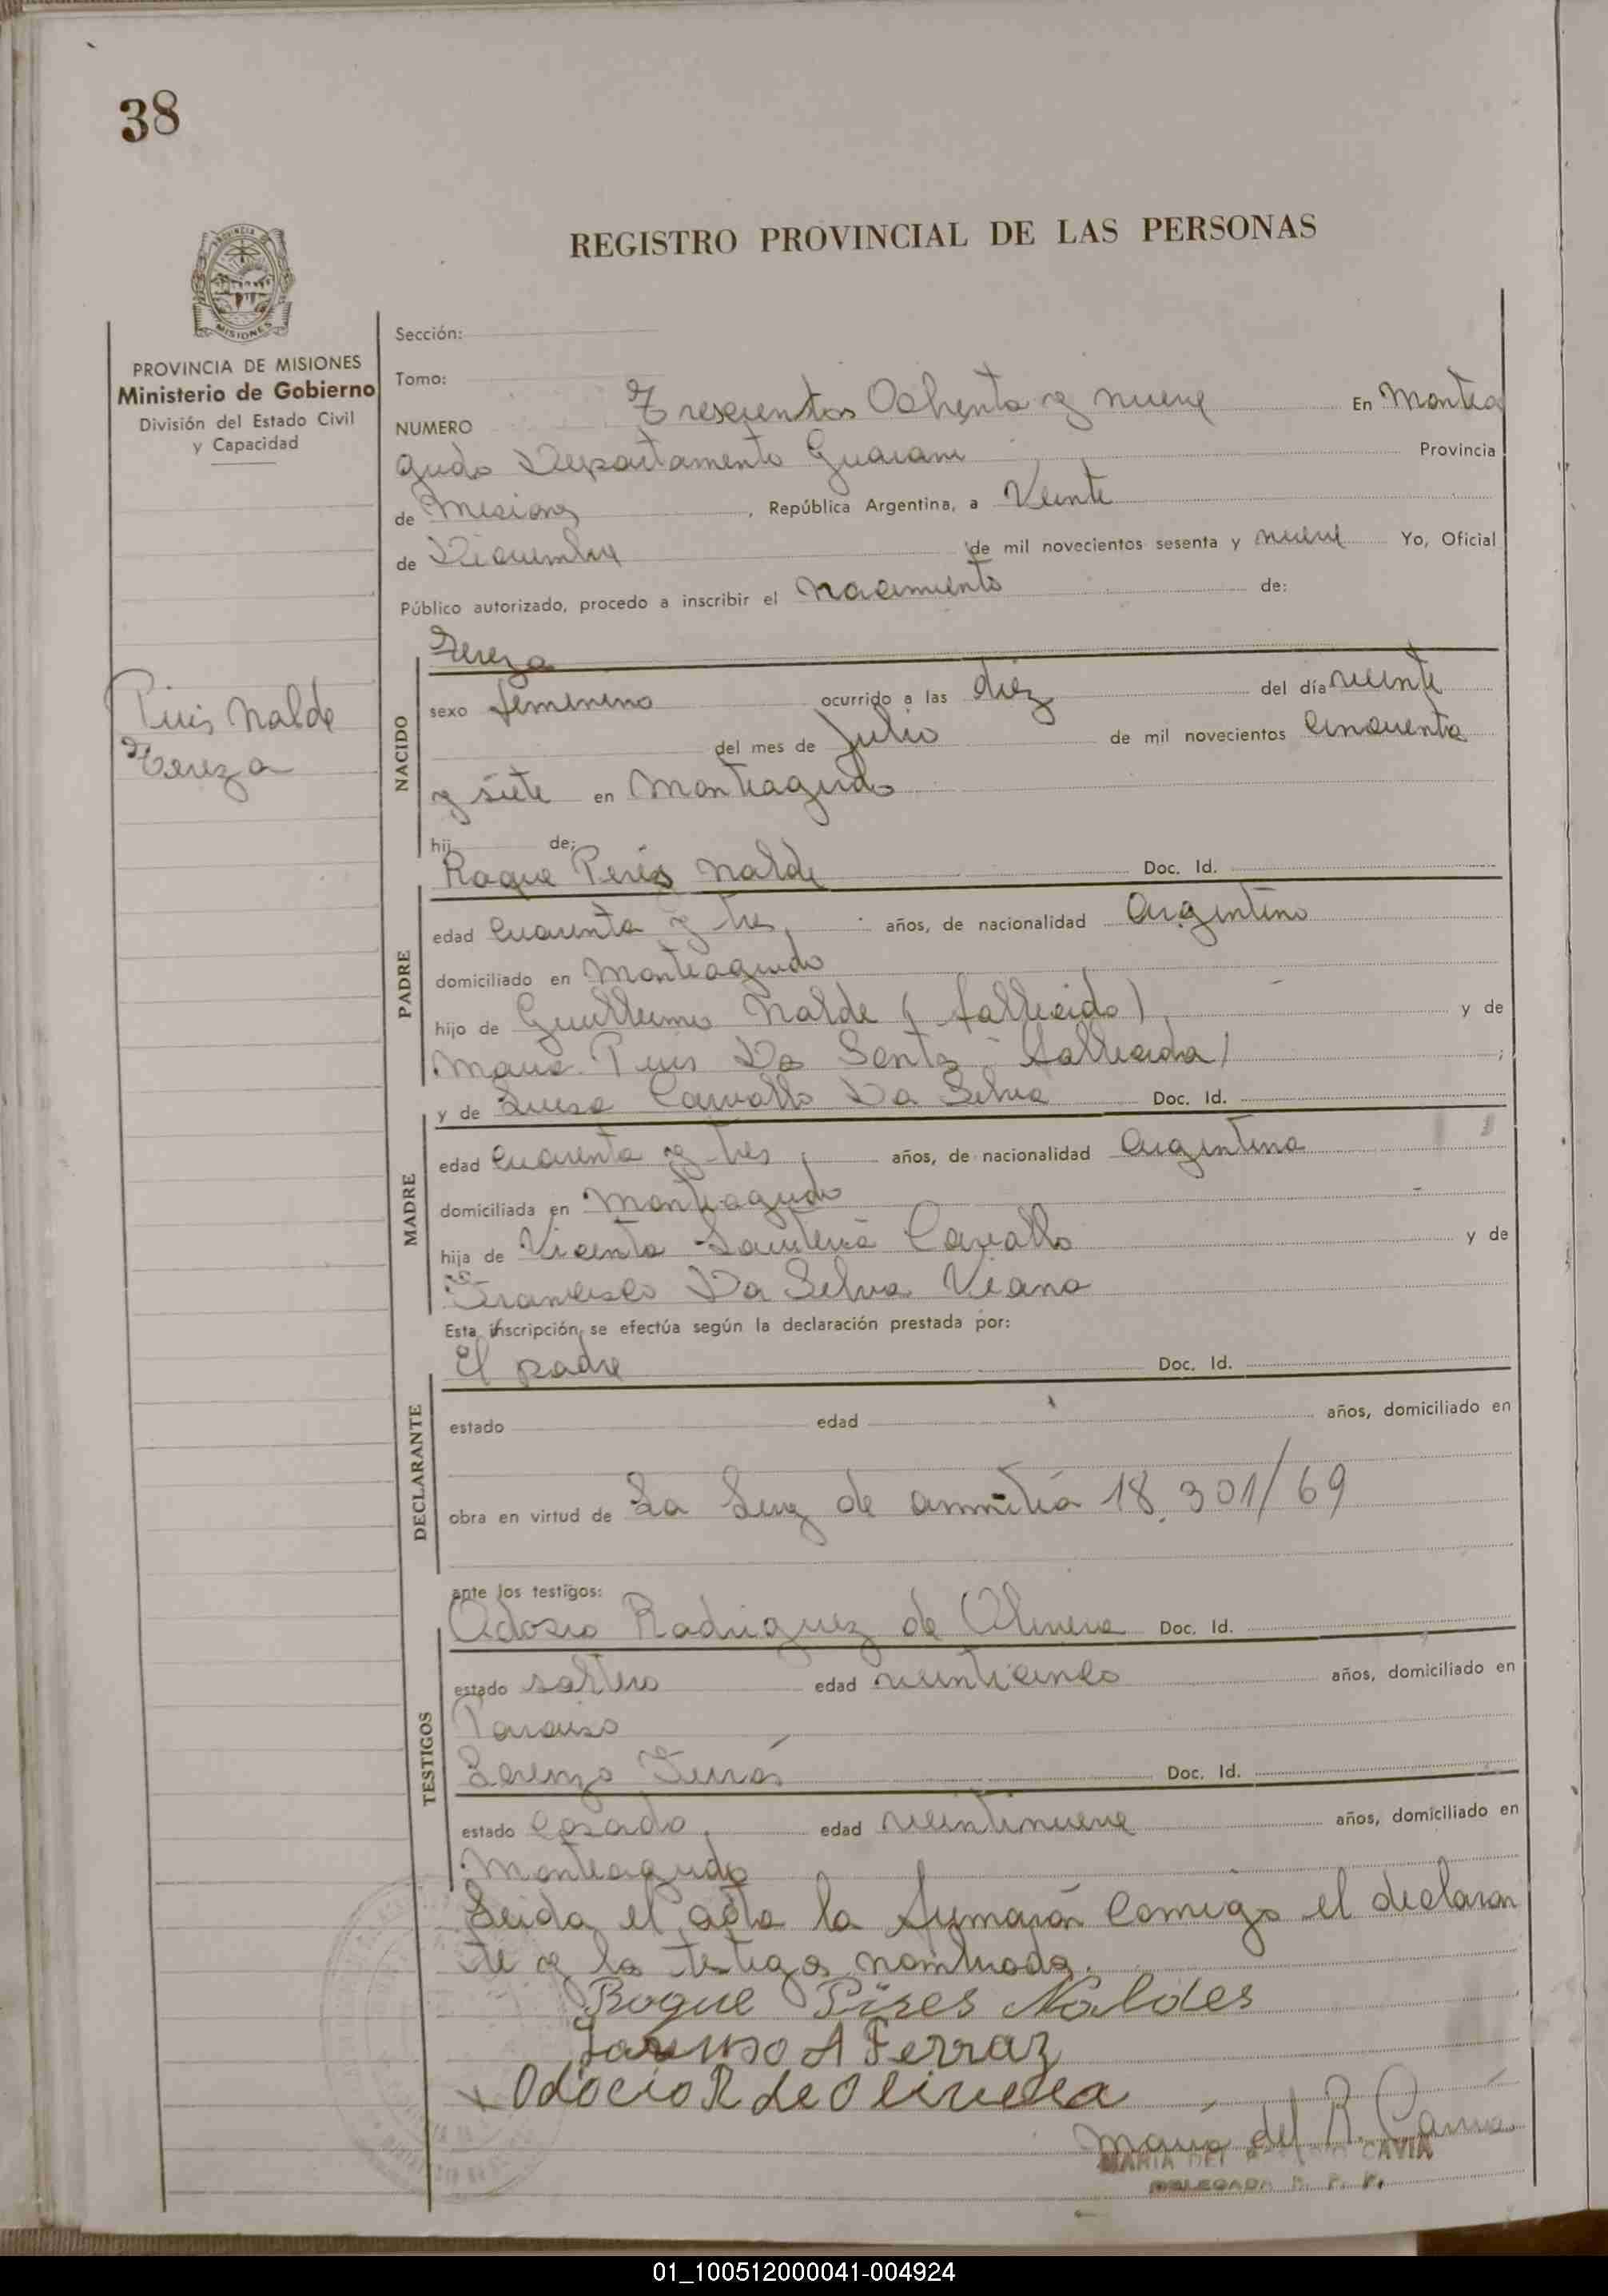 38
REGISTRO PROVINCIAL DE LAS PERSONAS
MISIONES
PROVINCIA DE MISIONES
Ministerio de Gobierno
División del Estado Civil
y Capacidad
Sección:
Tomo:
NUMERO Trescientos Ochenta y nueve En Montea
gudo Departamento Guarani Provincia
de Misiones, República Argentina, a Veinte
de Diciembre de mil novecientos sesenta y nueve Yo, Oficial
Público autorizado, procedo a inscribir el nacimiento de:
Piris Nalde
Tereza
NACIDO
Tereza
sexo femenino ocurrido a las diez del día veinte
del mes de Julio de mil novecientos cincuenta
y siete en Monteagudo
hij de:
PADRE
Roque Peris Nalde Doc. Id.
edad cuarenta y tres, años, de nacionalidad Argentino
domiciliado en Monteagudo
hijo de Guillermo Nalde (fallecido) y de
Maria Piris Da fallecida) ;
y de Luisa Carvallo Da Silva Doc. Id.
MADRE
edad cuarenta y tres, años, de nacionalidad Argentina
domiciliada en Monteagudo
hija de Vicente Carvallo y de
Da Silva Viana
Esta inscripción se efectúa según la declaración prestada por:
DECLARANTE
El padre Doc. Id.
estado edad años, domiciliado en
obra en virtud de La Ley de amnitiá 18.301/69
ante los testigos:
TESTIGOS
Rodriguez de Olivera Doc. Id.
estado soltero edad veinticinco años, domiciliado en
Paraiso
Lorenzo Doc. Id.
estado casado, edad veintinueve años, domiciliado en
Monteagudo
Leida el acta la firmarón comigo el declaran
te y los testigos nombrados.
Roque Pires Naldes
A Ferraz
x Odocio R de Oliveira
Maria del R. Cavia
MARIA DEL CAVIA
DELEGADA R. P. P.
01_100512000041-004924